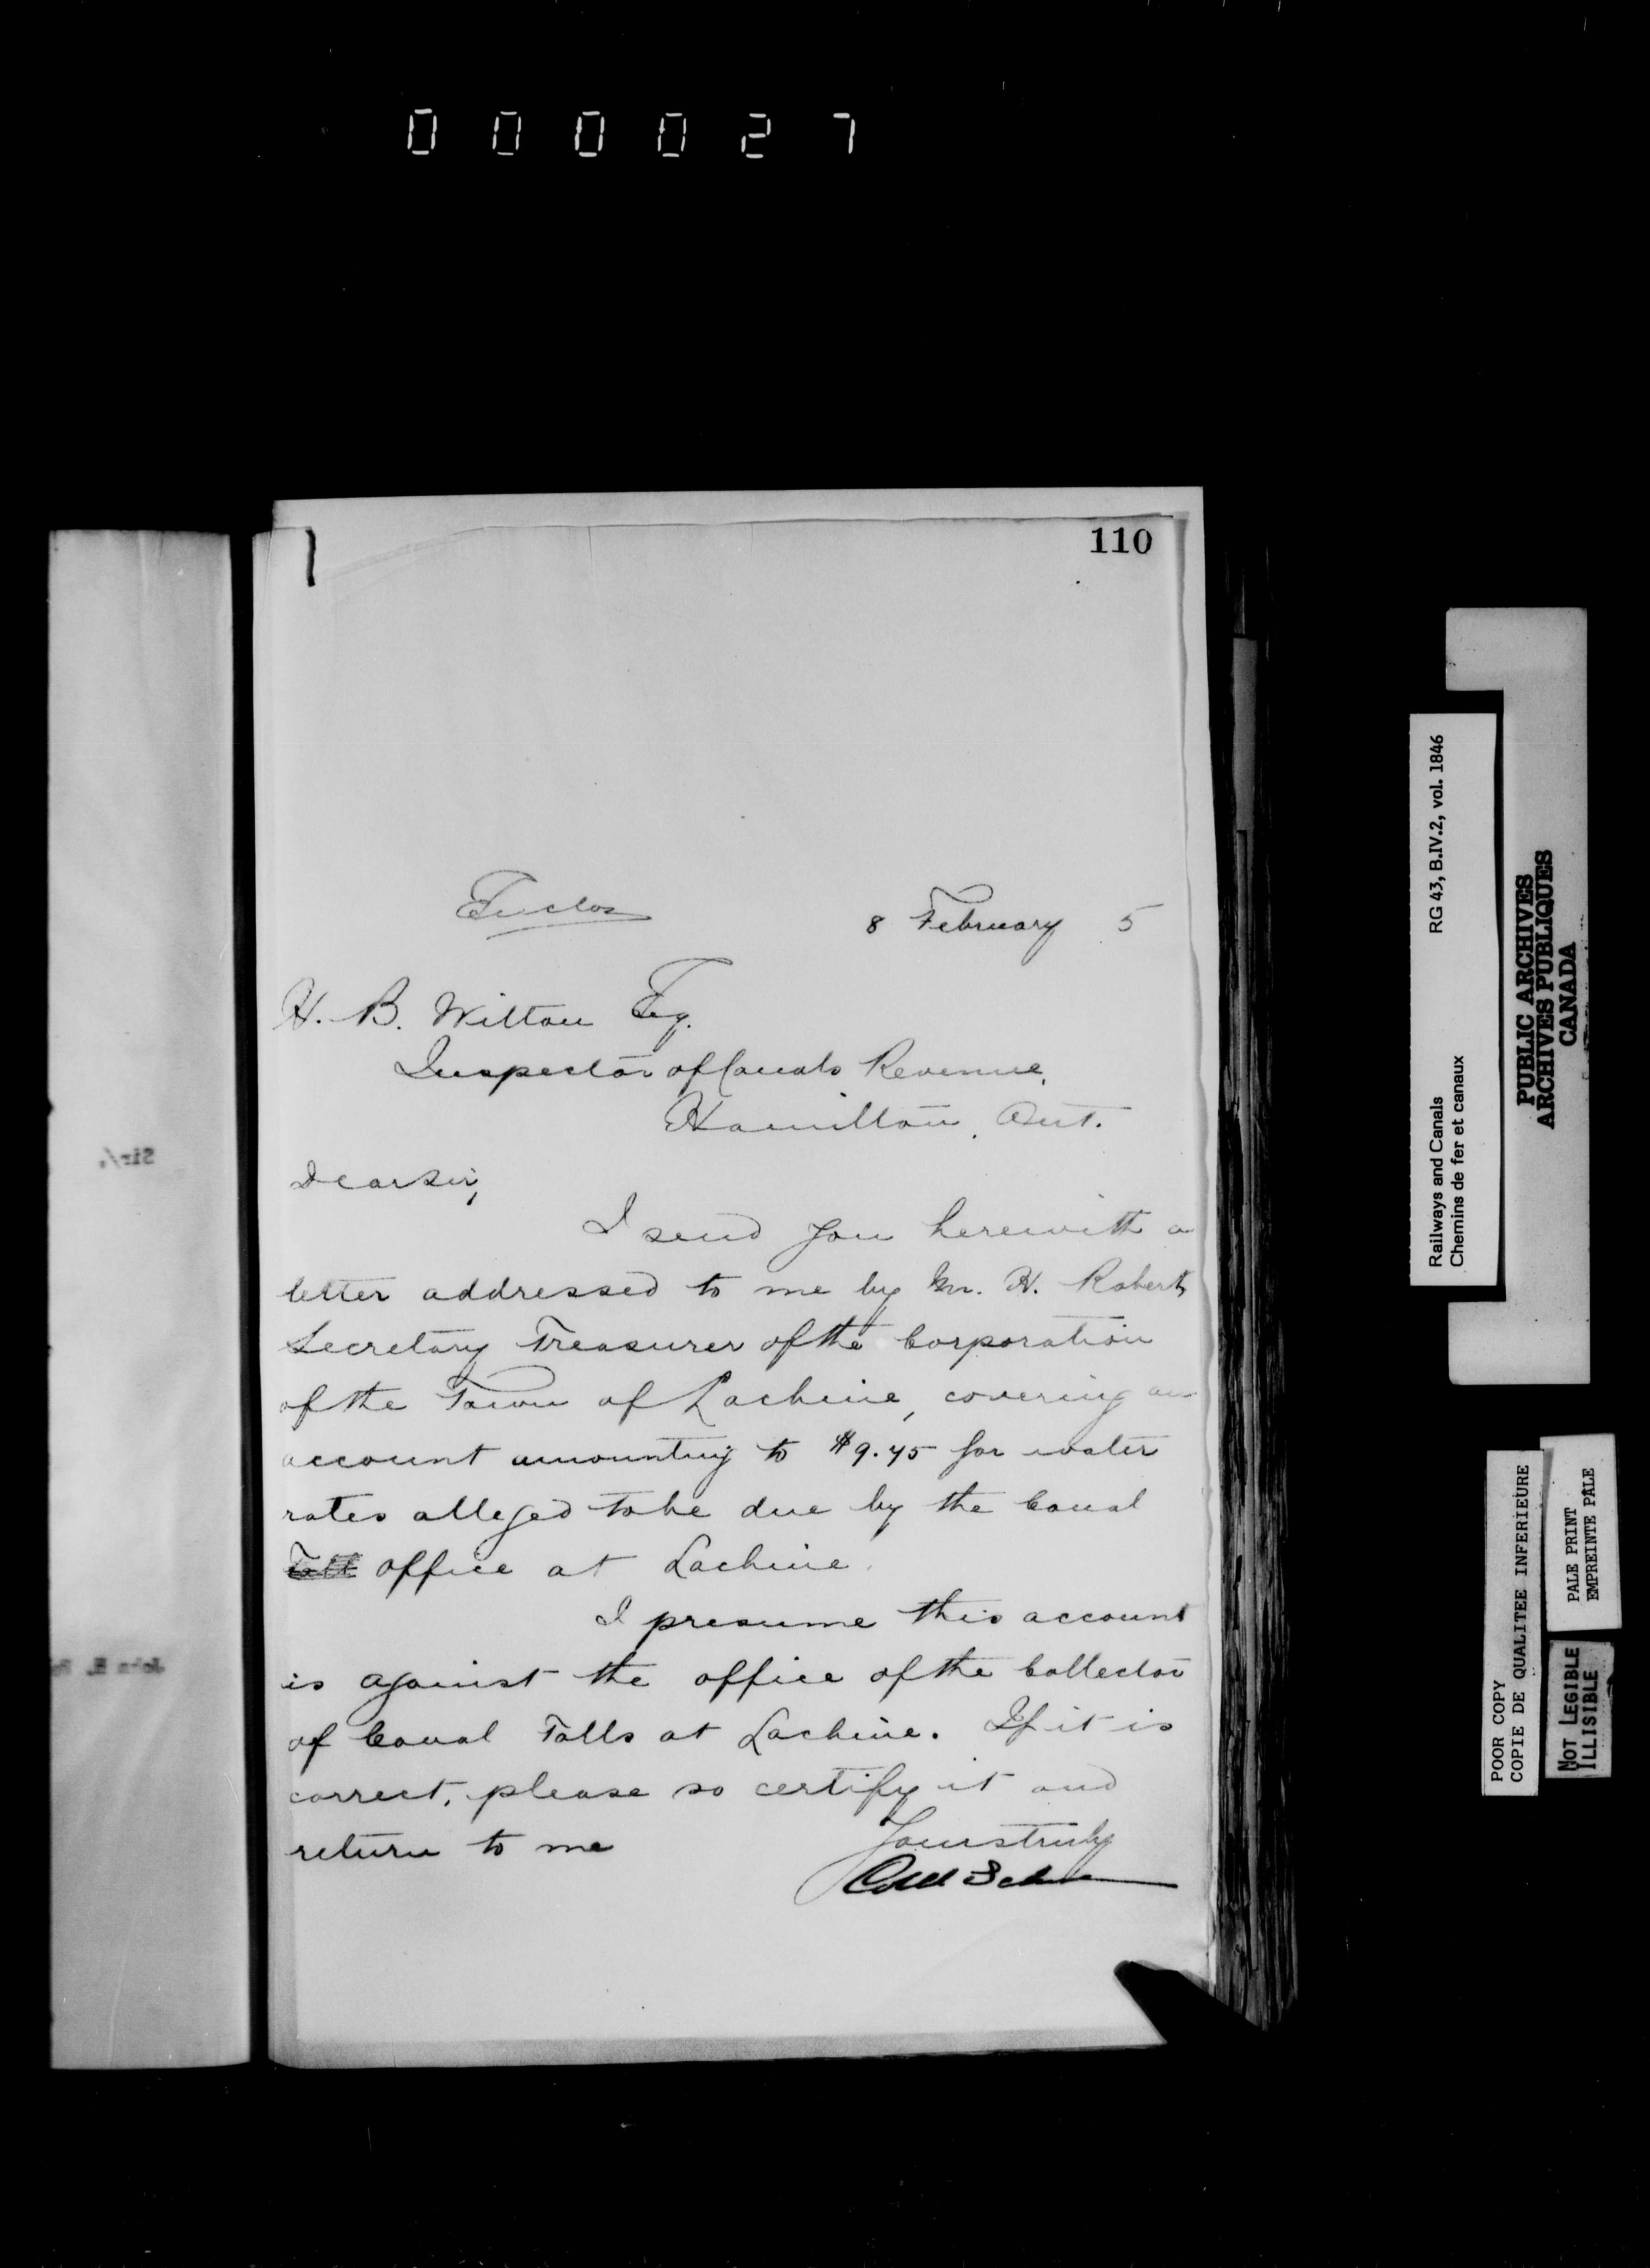 000027
110
Enclos
8 February 5
H. B. Witton Esq.
Inspector of Canals Revenue,
Hamilton, Ont.
Dear Sir,
I send you herewith a
letter addressed to me by Mr. H. Robert,
Secretary Treasurer of the Corporation
of the Town of Lachine, covering an
account amounting to $9.45 for water
rates alleged to be due by the Canal
office at Lachine.
I presume this account
is against the office of the Collector
of Canal Tolls at Lachine. If it is
correct, please so certify it and
return to me
Yours truly
Sir/,
John H.
Railways and Canals RG 43, B.IV.2, vol. 1846
Chemins de fer et canaux
PUBLIC ARCHIVES
ARCHIVES PUBLIQUES
CANADA
POOR COPY
COPIE DE QUALITEE INFERIEURE
PALE PRINT
EMPREINTE PÂLE
NOT LEGIBLE
ILLISIBLE